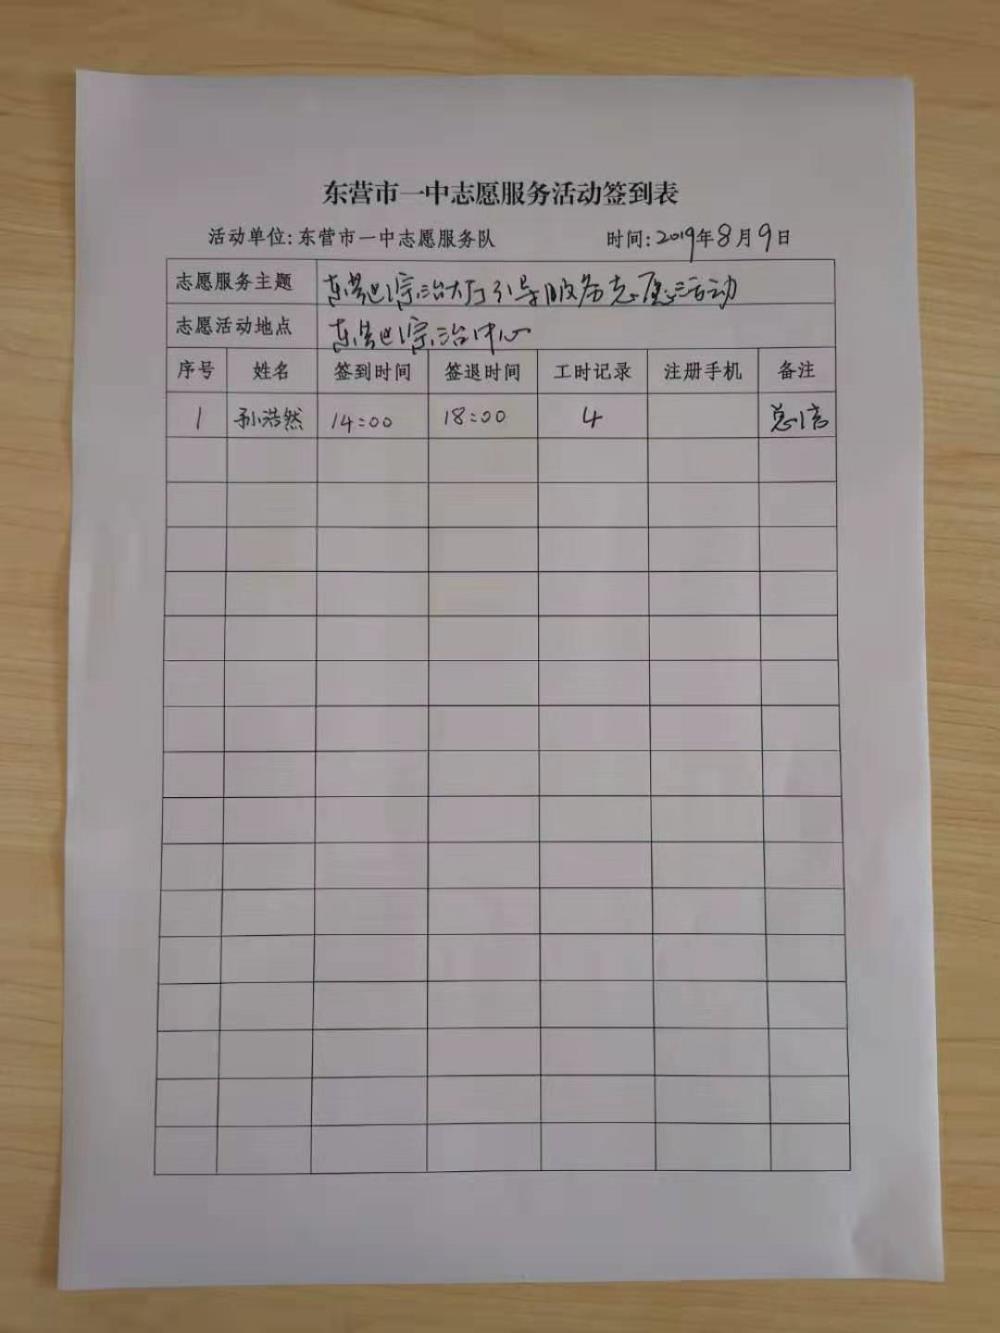 东营市一中志愿服务活动签到表
活动单位:东营市一中志愿服务队 时间:2019年8月9日
志愿服务主题 东营区综治大厅引导服务志愿活动
志愿活动地点 东营区综治中心
序号 姓名 签到时间 签退时间 工时记录 注册手机 备注
1 孙浩然 14:00 18:00 4